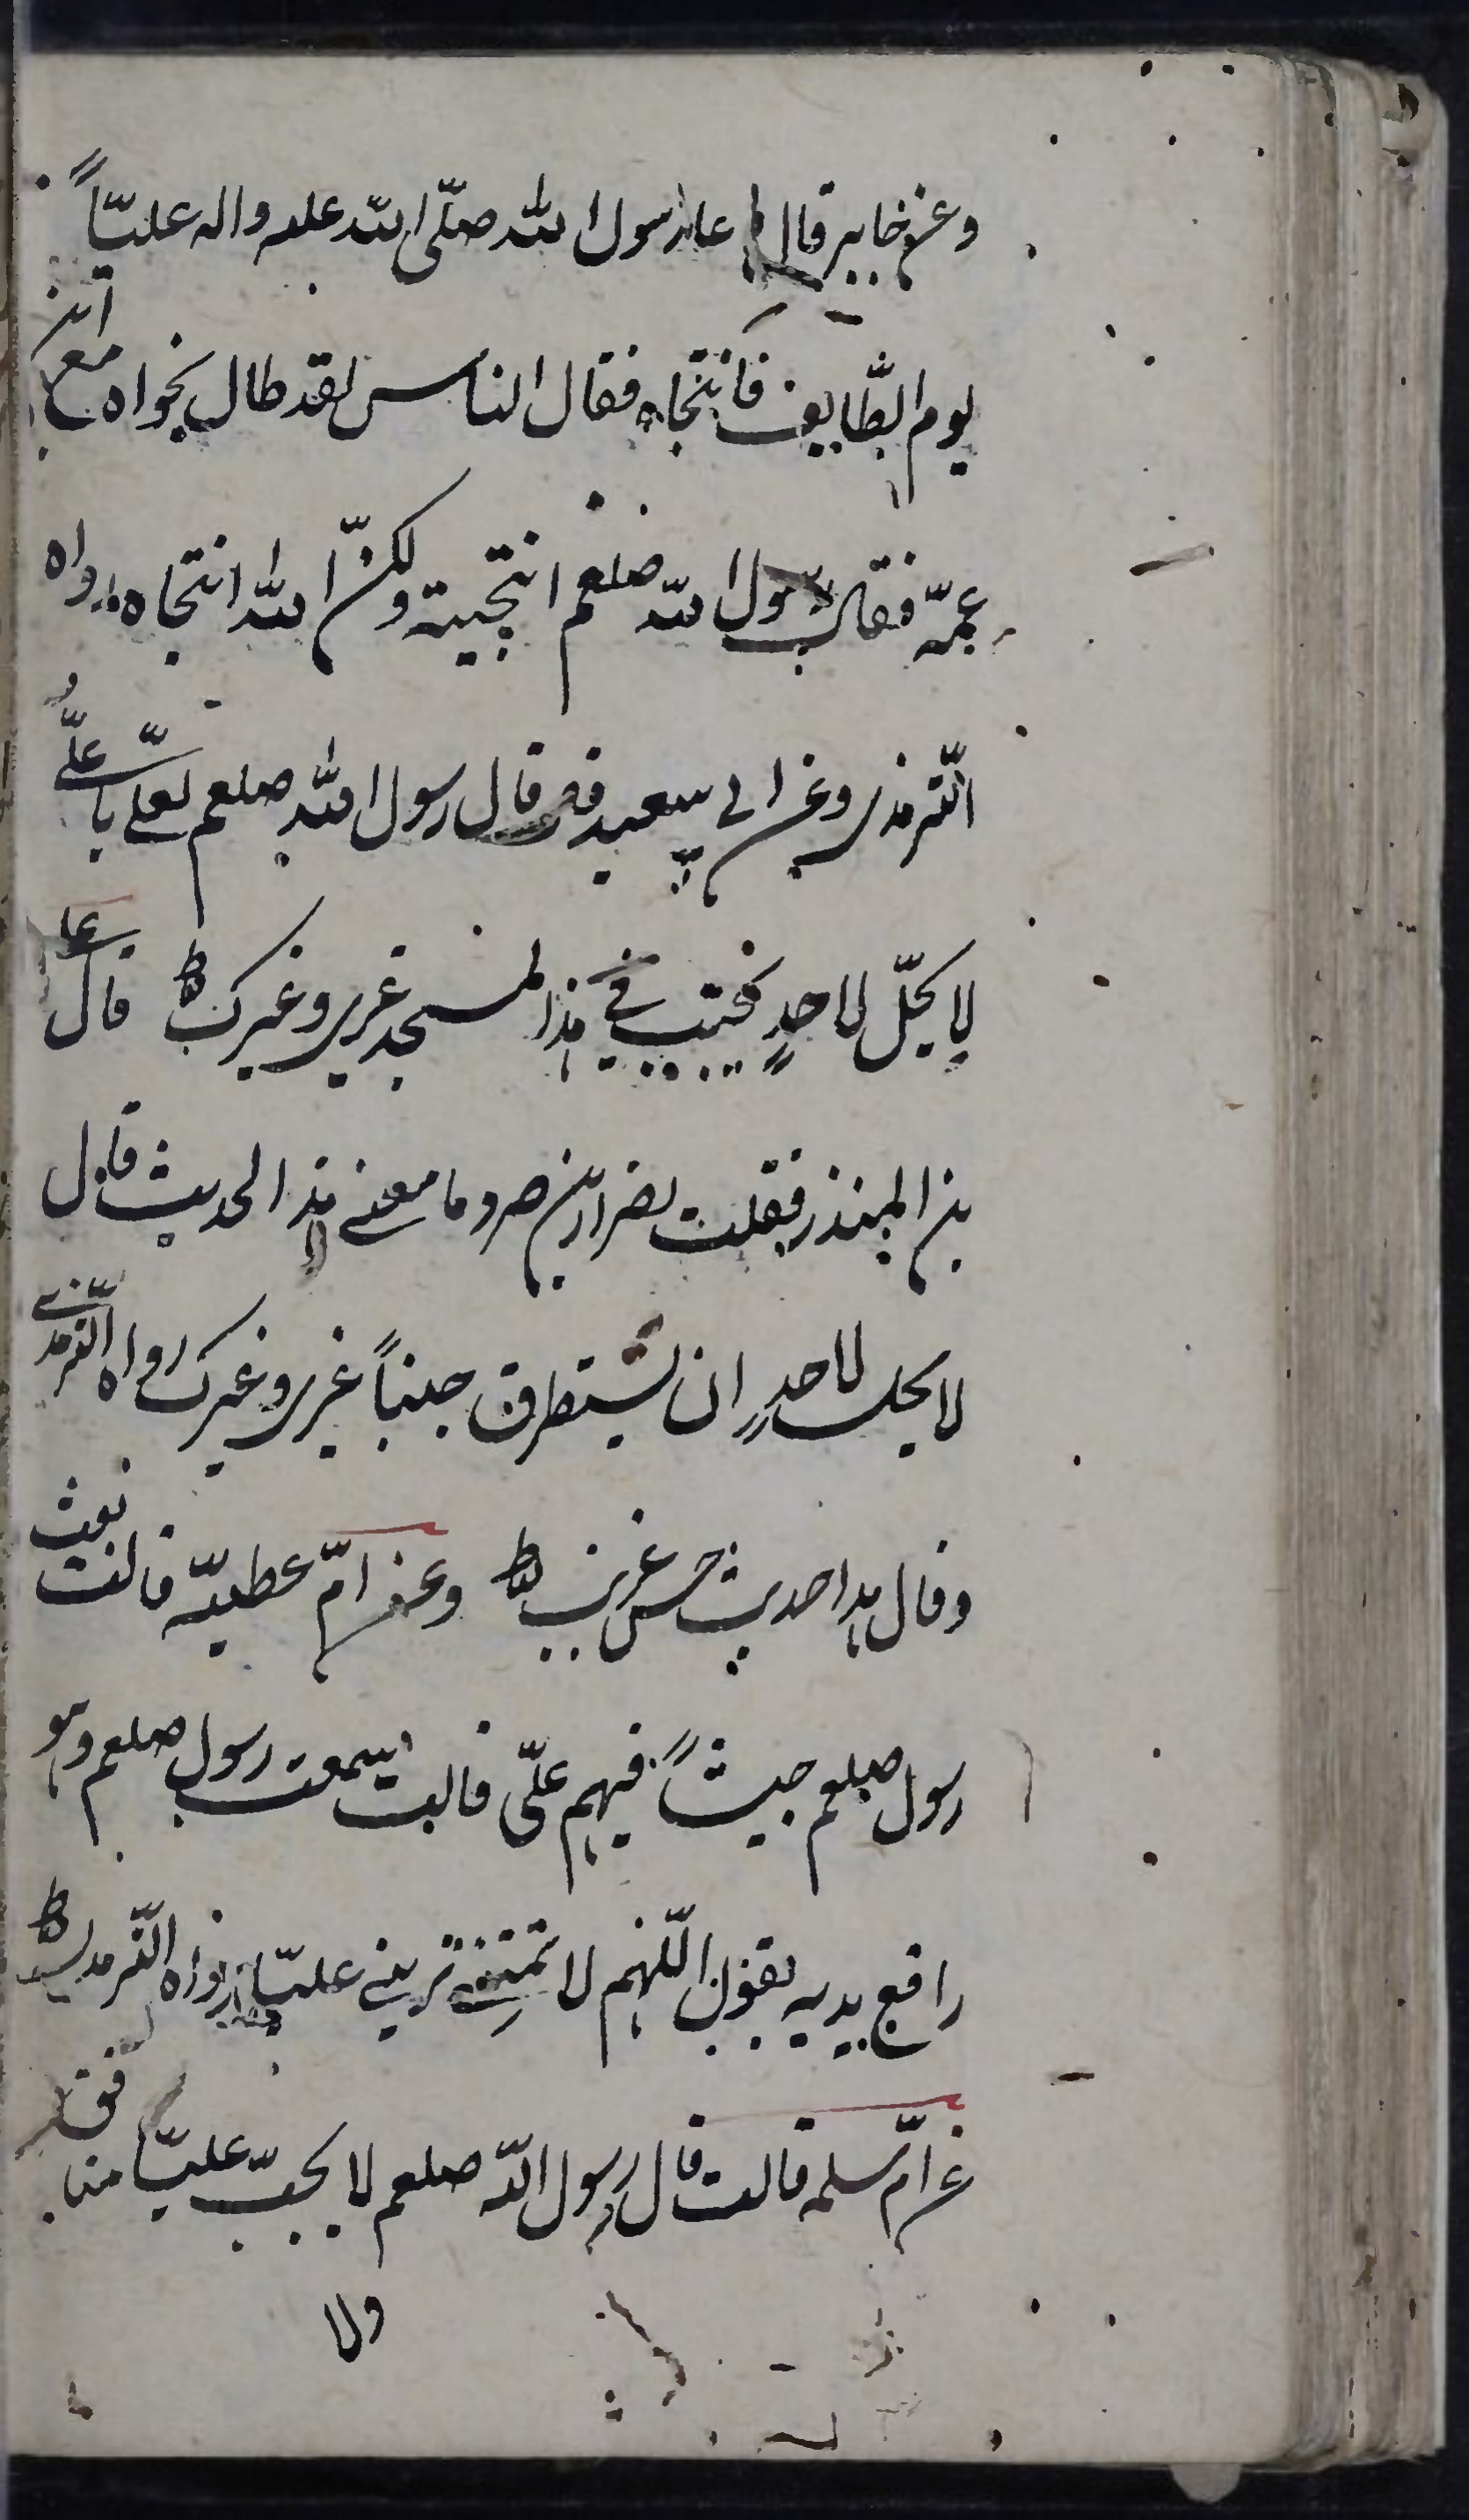 وعن جابر قال دعا رسول الله صلّى الله عليه واله عليّاً
يوم الطّايف فانتجاه فقال الناس لقد طال نجواه مع ابن
عمّه فقال رسول الله صلعم انتجيته ولكنّ الله انتجاه رواه
الّترمذى وعن ابى سعيد قال قال رسول الله صلعم لعلى يا علىُّ
لا يحلّ لاحدٍ يجنب في هذا المسجد غيرى وغيرك قال على
بن المنذر فقلت لضرار بن صرد ما معنى هذا الحديث قال
لا يحل لاحدٍ ان يستطرق جنباً غيرى وغيرك رواه الّترمذى
وقال هذا حديث حسن غريب وعن امّ عطيّه قالت بعث
رسول صلعم جيشاً فيهم علىّ قالت سمعت رسول صلعم وهو
رافع يديه يقول اللّهم لا تمتنى ترينى عليّا رواه الّترمذى
عن امّ سلمه قالت قال رسول الله صلعم لا يحبّ عليّا منافق
ولا